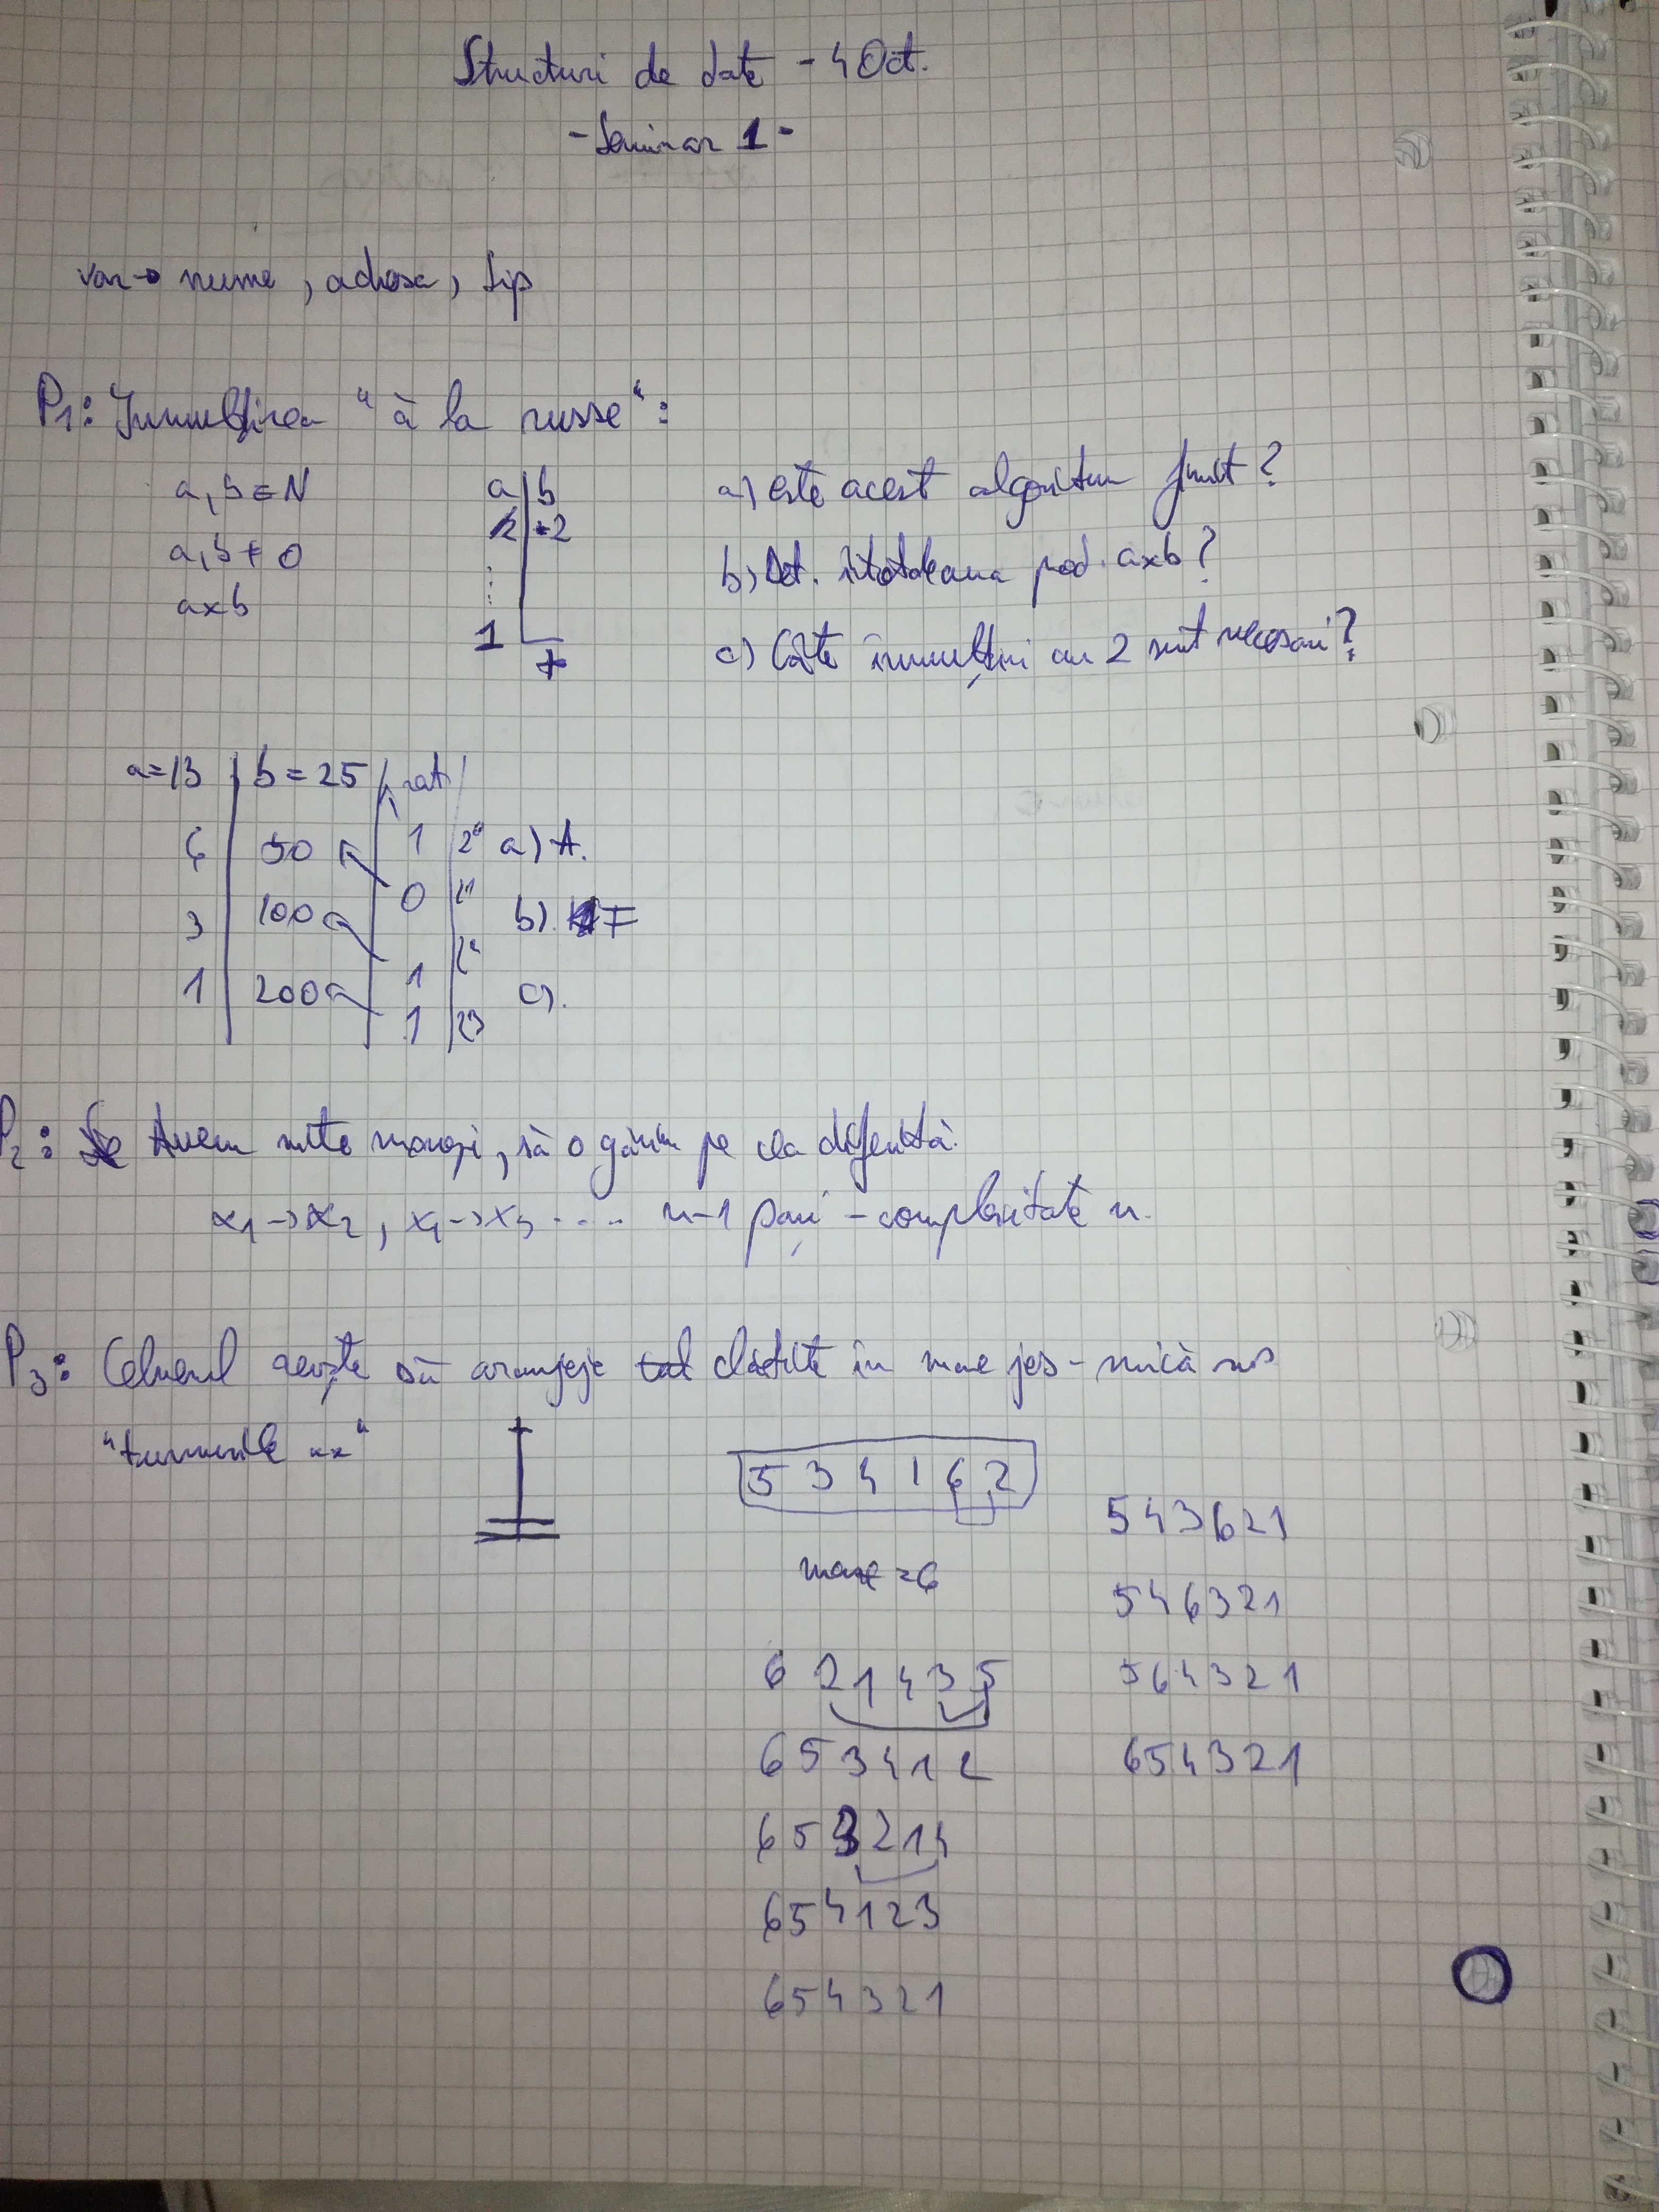 Structuri de date - 4 Oct.
- Seminar 1 -
var → nume, adresa, tip
P1: Înmulțirea "à la russe":
a, b ∈ N
a, b ≠ 0
a×b
a | b
/2 | ·2
⋮
1
+
a) este acest algoritm finit?
b) Det. întotdeauna prod. a×b?
c) Câte înmulțiri cu 2 sunt necesari?
a=13 | b=25 | rest |
6 | 50 | 1 | 2⁰ a) A.
3 | 100 | 0 | 2¹ b). F
1 | 200 | 1 | 2² c).
1 | 2³
P2: Avem multe monezi, să o găsim pe cea diferită.
x1 → x2, x1 → x3 .... n-1 pași - complexitate n.
P3: Chelnerul dorește să aranjeze clătite în mare jos - mică sus
5 3 4 1 6 2
max = 6
6 2 1 4 3 5
6 5 3 4 1 2
6 5 3 2 1 4
6 5 4 1 2 3
6 5 4 3 2 1
5 4 3 6 2 1
5 4 6 3 2 1
5 6 4 3 2 1
6 5 4 3 2 1